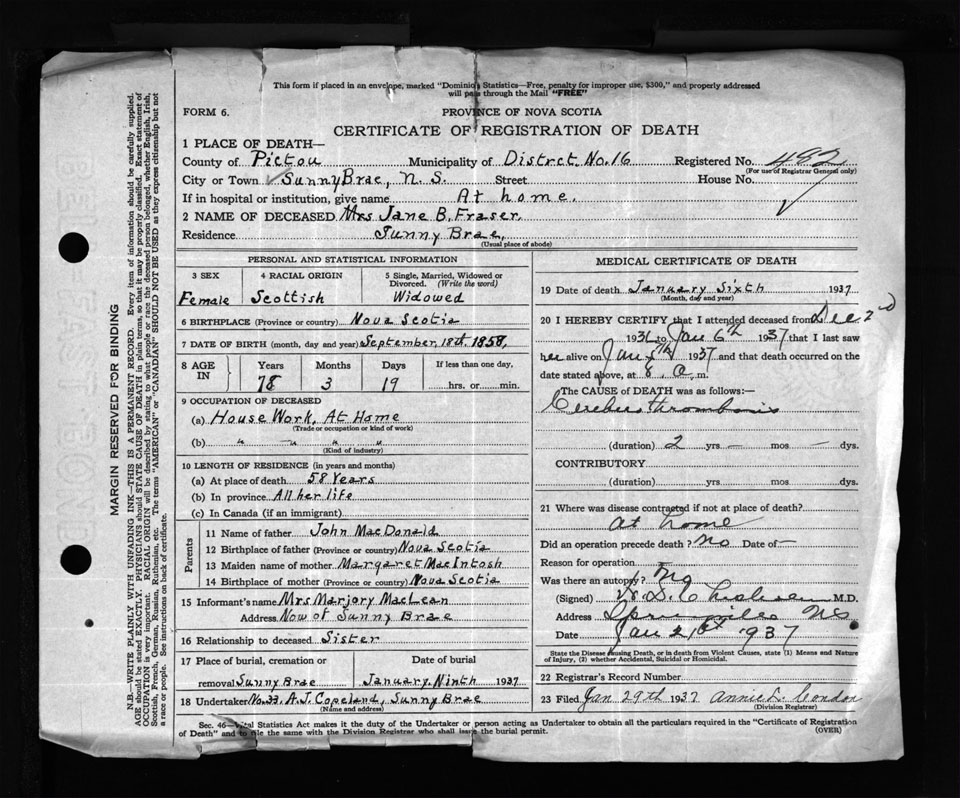 This form if placed in an envelope, marked "Dominion Statistics—Free, penalty for improper use, $300," and properly addressed
will pass through the Mail "FREE"
FORM 6.
PROVINCE OF NOVA SCOTIA
CERTIFICATE OF REGISTRATION OF DEATH
1 PLACE OF DEATH—
County of Pictou Municipality of Distrct No. 16 Registered No. 482
(For use of Registrar General only)
City or Town Sunny Brae, N. S. Street House No.
If in hospital or institution, give name At home.
2 NAME OF DECEASED Mrs Jane B. Fraser.
Residence Sunny Brae,
(Usual place of abode)
PERSONAL AND STATISTICAL INFORMATION
3 SEX 4 RACIAL ORIGIN 5 Single, Married, Widowed or
Divorced. (Write the word)
Female Scottish Widowed
6 BIRTHPLACE (Province or country) Nova Scotia
7 DATE OF BIRTH (month, day and year) September, 18th. 1858,
8 AGE IN Years Months Days If less than one day,
78 3 19 hrs. or min.
9 OCCUPATION OF DECEASED
(a) House Work, At Home
(Trade or occupation or kind of work)
(b) " " " "
(Kind of industry)
10 LENGTH OF RESIDENCE (in years and months)
(a) At place of death 58 Years
(b) In province All her life
(c) In Canada (if an immigrant)
Parents
11 Name of father John MacDonald
12 Birthplace of father (Province or country) Nova Scotia
13 Maiden name of mother Margaret MacIntosh
14 Birthplace of mother (Province or country) Nova Scotia
15 Informant's name Mrs Marjory MacLean
Address Now of Sunny Brae
16 Relationship to deceased Sister
17 Place of burial, cremation or Date of burial
removal Sunny Brae January Ninth 1937
18 Undertaker No. 33, A.J. Copeland, Sunny Brae
(Name and address)
MEDICAL CERTIFICATE OF DEATH
19 Date of death January Sixth 1937
(Month, day and year)
20 I HEREBY CERTIFY that I attended deceased from Dec 2nd
1936 to Jan 6th 1937 that I last saw
her alive on Jan 5th 1937 and that death occurred on the
date stated above, at 8 a m.
The CAUSE OF DEATH was as follows:—
thrombosis
(duration) 2 yrs – mos – dys.
CONTRIBUTORY
(duration) yrs. mos. dys.
21 Where was disease contracted if not at place of death?
at home
Did an operation precede death? No Date of –
Reason for operation
Was there an autopsy? No
(Signed) M.D.
Address Springville NS
Date Jan 21st 1937
State the Disease causing Death, or in death from Violent Causes, state (1) Means and Nature
of Injury, (2) whether Accidental, Suicidal or Homicidal.
22 Registrar's Record Number
23 Filed Jan 29th 1937 Annie L. Condon
(Division Registrar)
Sec. 46—Vital Statistics Act makes it the duty of the Undertaker or person acting as Undertaker to obtain all the particulars required in the "Certificate of Registration
of Death" and to file the same with the Division Registrar who shall issue the burial permit. (OVER)
MARGIN RESERVED FOR BINDING
N.B.—WRITE PLAINLY WITH UNFADING INK—THIS IS A PERMANENT RECORD. Every item of information should be carefully supplied.
AGE should be stated EXACTLY. PHYSICIANS should STATE CAUSE OF DEATH in plain terms, so that it may be properly classified. Exact statement of
OCCUPATION is very important. RACIAL ORIGIN will be described by stating to what people or race the deceased person belonged, whether English, Irish,
Scottish, French, German, Russian, Ruthenian, etc. The terms "AMERICAN" or "CANADIAN" SHOULD NOT BE USED as they express citizenship but not
a race or people. See instructions on back of certificate.